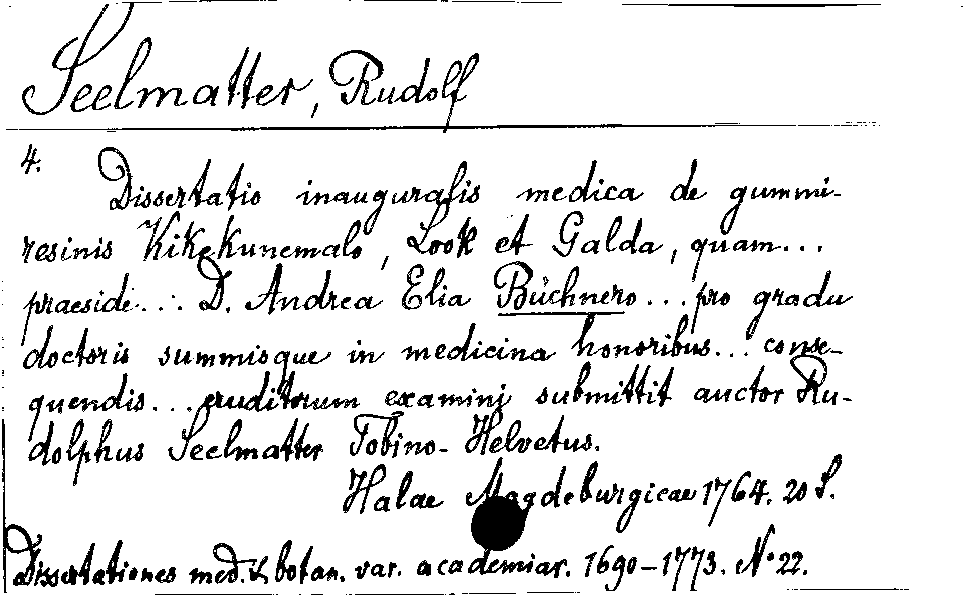 Seelmatter, Rudolf
4.
Dissertatio inauguralis medica de gummi-
resinis Kikekunemalo, Look et Galda, quam...
praeside... D. Andrea Elia Büchnero... pro gradu
doctoris summisque in medicina honoribus... conse-
quendis... eruditorum examini submittit auctor Ru-
dolphus Seelmatter Tobino-Helvetus.
Halae Magdeburgicae 1764. 20 S.
Dissertationes med. & botan. var. academiar. 1690-1773. No 22.